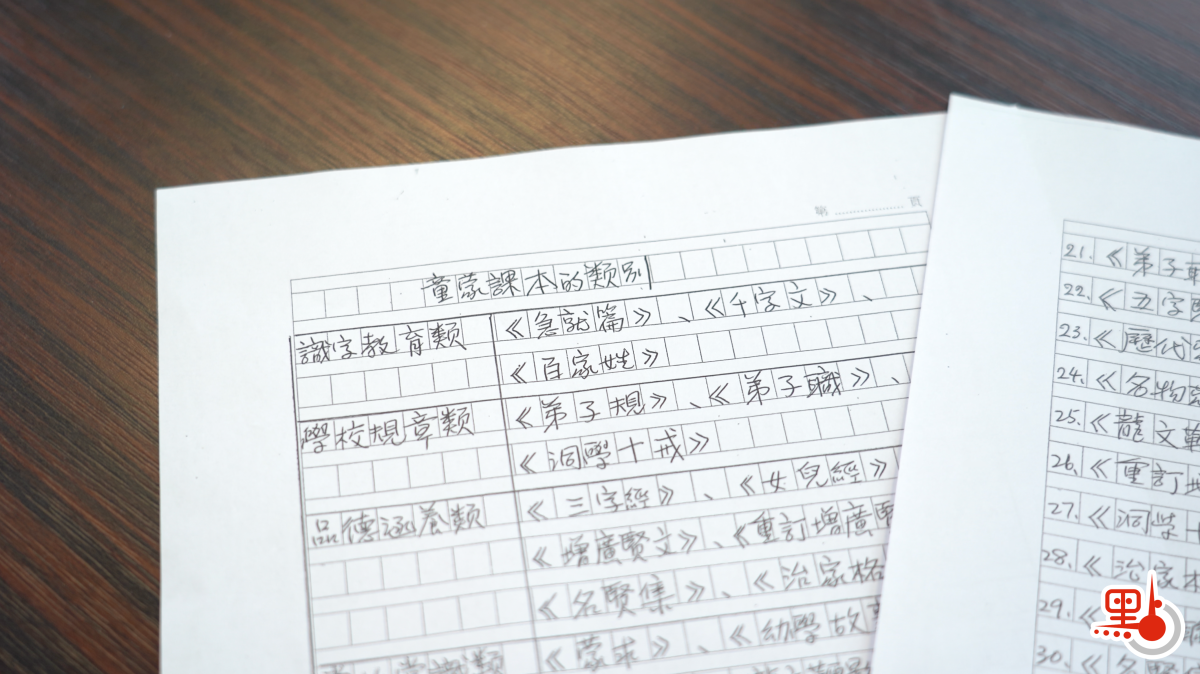 第 頁
童蒙課本的類別
識字教育類
《急就篇》、《千字文》、
《百家姓》
學校規章類
《弟子規》、《弟子職》、
《洞學十戒》
品德涵養類
《三字經》、《女兒經》
《增廣賢文》、《重訂增廣
《名賢集》、《治家格
常識類
《蒙求》、《幼學故
21.《弟子職
22.《五字
23.《歷代
24.《名物
25.《龍文
26.《重訂
27.《洞學十
28.《治家
29.《
30.《名賢
點